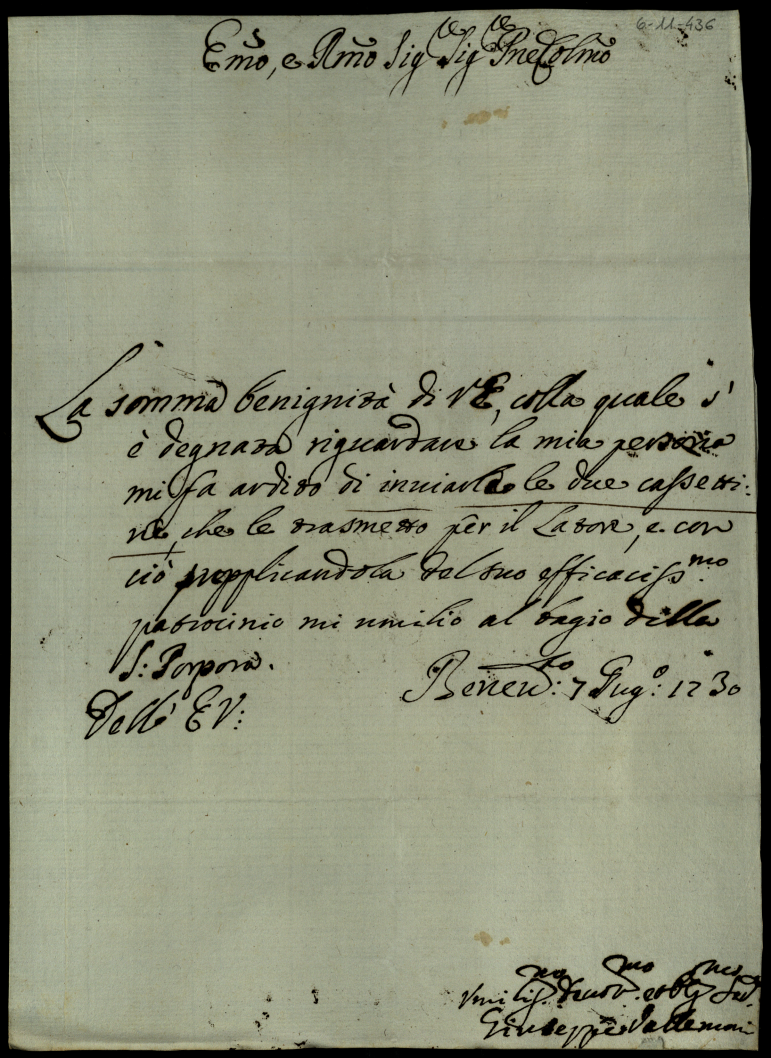 6-11-436
Emo, e Rmo Sig.re Sig.re Pne Colmo
La somma benignità di V.E, colla quale s'
è degnata riguardare la mia persona
mi fa ardito di inviarle le due cassetti:
ne, che le trasmetto per il Latore, e con
ciò supplicandola del suo efficaciss.mo
patrocinio mi umilio al bagio della
S: Porpora.
Benev.to: 7 Giug.o: 1730
Dell' E V:
Umilis.mo Devot.mo et obg.mo Ser.
Giuseppe